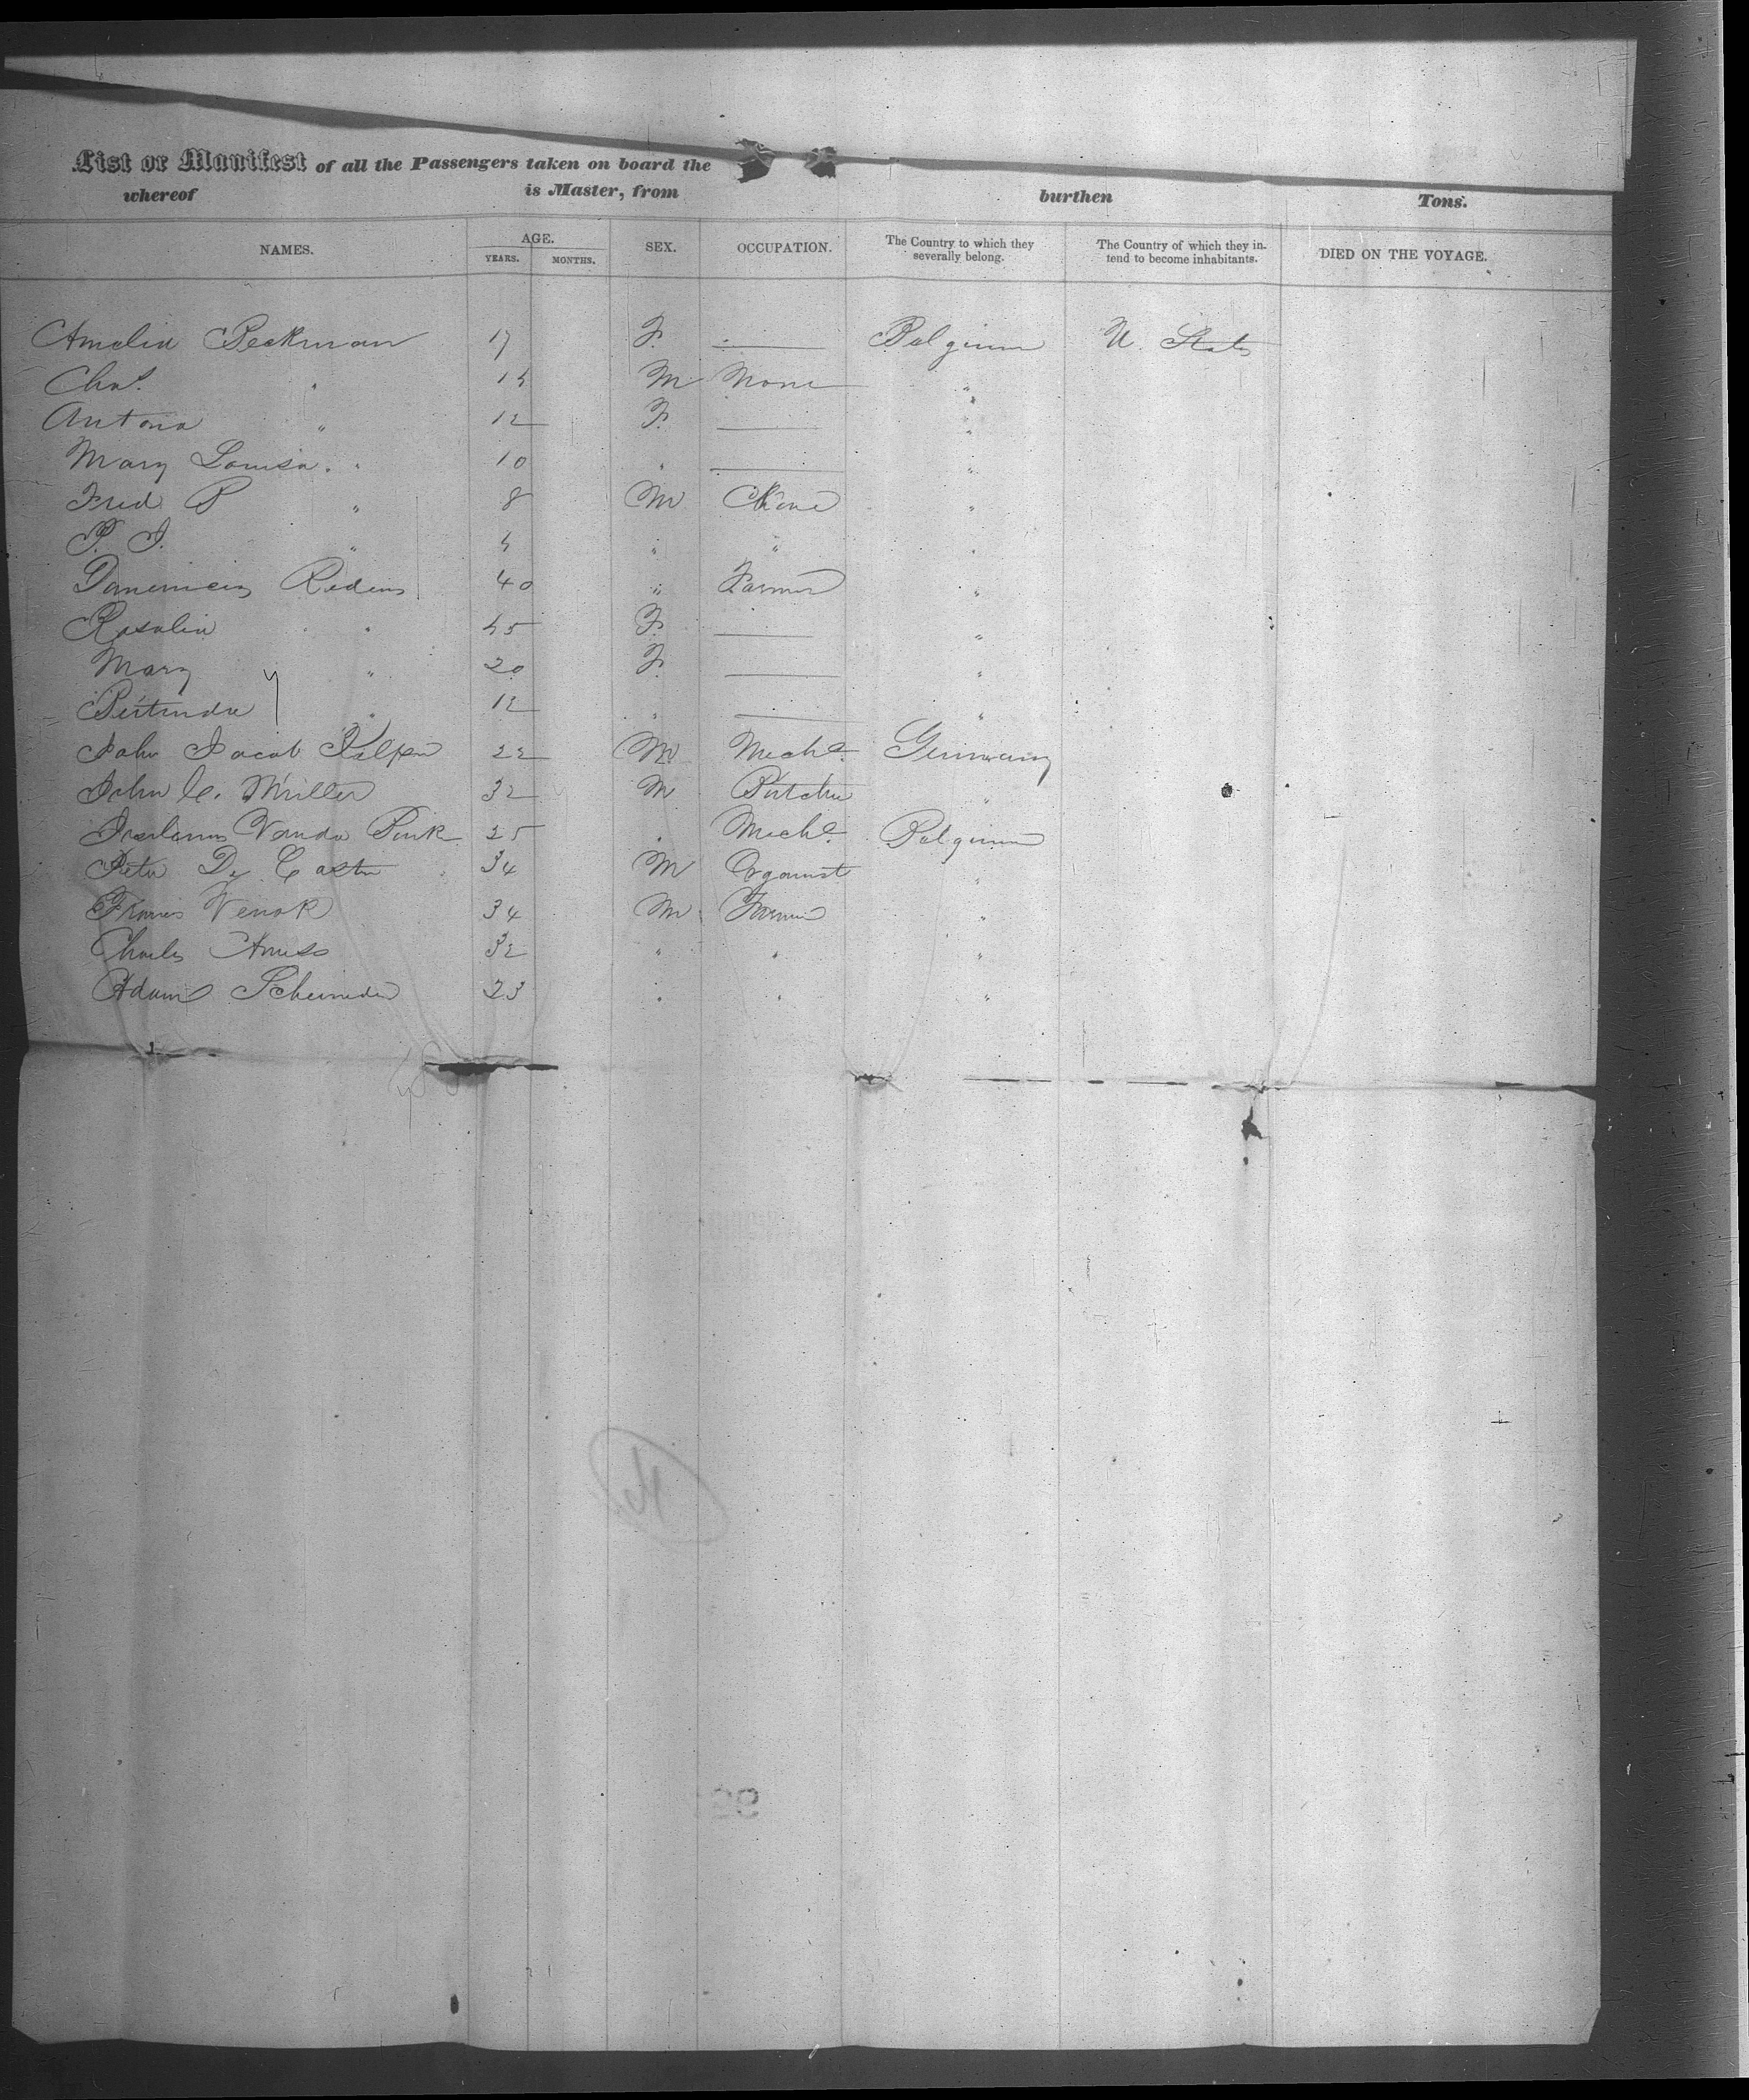 List or Manifest of all the Passengers taken on board the
whereof is Master, from burthen Tons.
NAMES. AGE. YEARS. MONTHS. SEX. OCCUPATION. The Country to which they severally belong. The Country of which they intend to become inhabitants. DIED ON THE VOYAGE.
Amelia Beckman 17 F. — Belgium U. States
Chas. " M None "
Antona " 12 F. — "
Mary Louisa " 10 " — "
Fred B " 8 M "
P. J. " " " "
Redens 40 " Farmer "
Rosalia " F. — "
Mary " 20 F. — "
Bertrudu " 12 " — "
John Jacob 22 M Mech. Germany
John C. Miller 32 M Butcher "
Vanda Burk 25 " Mech. Belgium
Peter De Caster 34 M Organist "
Francis Venok 34 M Farmer "
Charles 32 " " "
Adam Scheineder 23 " " "